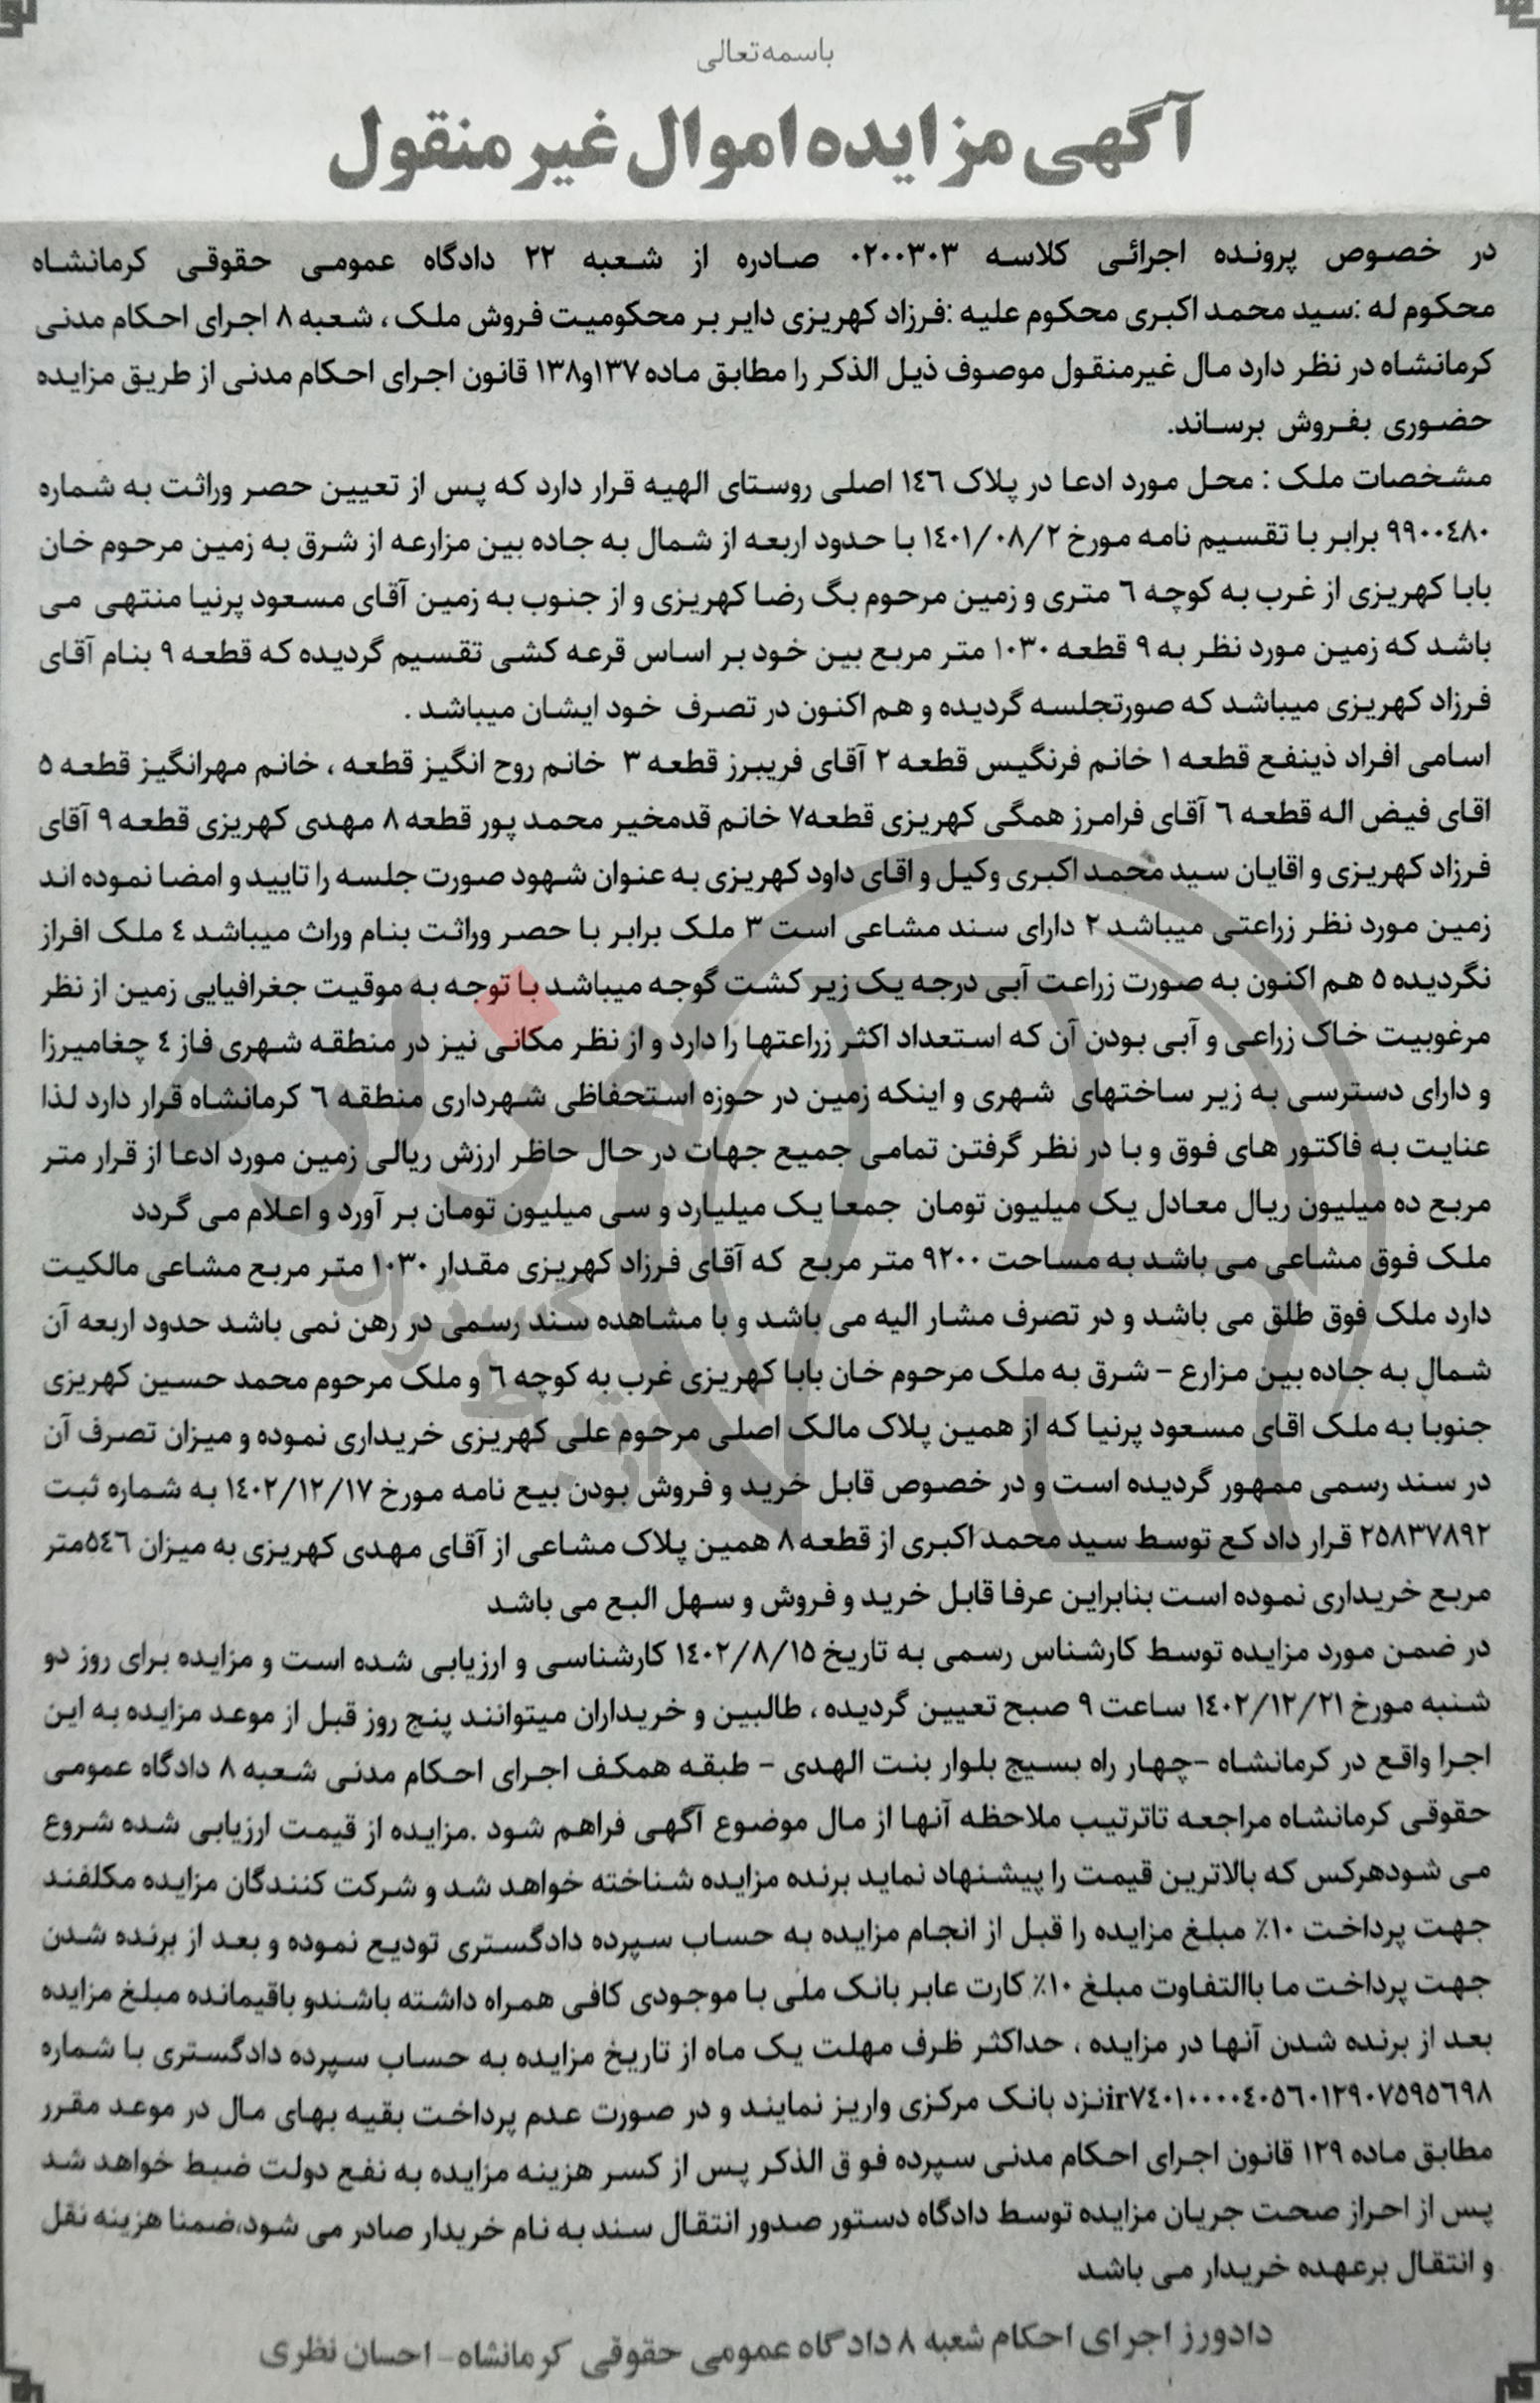 باسمه تعالی
آگهی مزایده اموال غیر منقول
در خصوص پرونده اجرائی کلاسه ۰۲۰۰۳۰۳ صادره از شعبه ۲۲ دادگاه عمومی حقوقی کرمانشاه
محکوم له :سید محمد اکبری محکوم علیه :فرزاد کهریزی دایر بر محکومیت فروش ملک ، شعبه ۸ اجرای احکام مدنی
کرمانشاه در نظر دارد مال غیرمنقول موصوف ذیل الذکر را مطابق ماده ۱۳۷و۱۳۸ قانون اجرای احکام مدنی از طریق مزایده
حضوری بفروش برساند.
مشخصات ملک : محل مورد ادعا در پلاک ۱٤٦ اصلی روستای الهیه قرار دارد که پس از تعیین حصر وراثت به شماره
۹۹۰۰٤۸۰ برابر با تقسیم نامه مورخ ۱٤۰۱/۰۸/۲ با حدود اربعه از شمال به جاده بین مزارعه از شرق به زمین مرحوم خان
بابا کهریزی از غرب به کوچه ٦ متری و زمین مرحوم بگ رضا کهریزی و از جنوب به زمین آقای مسعود پرنیا منتهی می
باشد که زمین مورد نظر به ۹ قطعه ۱۰۳۰ متر مربع بین خود بر اساس قرعه کشی تقسیم گردیده که قطعه ۹ بنام آقای
فرزاد کهریزی میباشد که صورتجلسه گردیده و هم اکنون در تصرف خود ایشان میباشد .
اسامی افراد ذینفع قطعه ۱ خانم فرنگیس قطعه ۲ آقای فریبرز قطعه ۳ خانم روح انگیز قطعه ، خانم مهرانگیز قطعه ۵
اقای فیض اله قطعه ٦ آقای فرامرز همگی کهریزی قطعه۷ خانم قدمخیر محمد پور قطعه ۸ مهدی کهریزی قطعه ۹ آقای
فرزاد کهریزی و اقایان سید محمد اکبری وکیل و اقای داود کهریزی به عنوان شهود صورت جلسه را تایید و امضا نموده اند
زمین مورد نظر زراعتی میباشد ۲ دارای سند مشاعی است ۳ ملک برابر با حصر وراثت بنام وراث میباشد ٤ ملک افراز
نگردیده ۵ هم اکنون به صورت زراعت آبی درجه یک زیر کشت گوجه میباشد با توجه به موقیت جغرافیایی زمین از نظر
مرغوبیت خاک زراعی و آبی بودن آن که استعداد اکثر زراعتها را دارد و از نظر مکانی نیز در منطقه شهری فاز ٤ چغامیرزا
و دارای دسترسی به زیر ساختهای شهری و اینکه زمین در حوزه استحفاظی شهرداری منطقه ٦ کرمانشاه قرار دارد لذا
عنایت به فاکتور های فوق و با در نظر گرفتن تمامی جمیع جهات در حال حاظر ارزش ریالی زمین مورد ادعا از قرار متر
مربع ده میلیون ریال معادل یک میلیون تومان جمعا یک میلیارد و سی میلیون تومان بر آورد و اعلام می گردد
ملک فوق مشاعی می باشد به مساحت ۹۲۰۰ متر مربع که آقای فرزاد کهریزی مقدار ۱۰۳۰ متر مربع مشاعی مالکیت
دارد ملک فوق طلق می باشد و در تصرف مشار الیه می باشد و با مشاهده سند رسمی در رهن نمی باشد حدود اربعه آن
شمال به جاده بین مزارع – شرق به ملک مرحوم خان بابا کهریزی غرب به کوچه ٦ و ملک مرحوم محمد حسین کهریزی
جنوبا به ملک اقای مسعود پرنیا که از همین پلاک مالک اصلی مرحوم علی کهریزی خریداری نموده و میزان تصرف آن
در سند رسمی ممهور گردیده است و در خصوص قابل خرید و فروش بودن بیع نامه مورخ ۱٤۰۲/۱۲/۱۷ به شماره ثبت
۲۵۸۳۷۸۹۲ قرار داد کع توسط سید محمد اکبری از قطعه ۸ همین پلاک مشاعی از آقای مهدی کهریزی به میزان ۵٤٦متر
مربع خریداری نموده است بنابراین عرفا قابل خرید و فروش و سهل البع می باشد
در ضمن مورد مزایده توسط کارشناس رسمی به تاریخ ۱٤۰۲/۸/۱۵ کارشناسی و ارزیابی شده است و مزایده برای روز دو
شنبه مورخ ۱٤۰۲/۱۲/۲۱ ساعت ۹ صبح تعیین گردیده ، طالبین و خریداران میتوانند پنج روز قبل از موعد مزایده به این
اجرا واقع در کرمانشاه –چهار راه بسیج بلوار بنت الهدی – طبقه همکف اجرای احکام مدنی شعبه ۸ دادگاه عمومی
حقوقی کرمانشاه مراجعه تاترتیب ملاحظه آنها از مال موضوع آگهی فراهم شود .مزایده از قیمت ارزیابی شده شروع
می شودهرکس که بالاترین قیمت را پیشنهاد نماید برنده مزایده شناخته خواهد شد و شرکت کنندگان مزایده مکلفند
جهت پرداخت ۱۰٪ مبلغ مزایده را قبل از انجام مزایده به حساب سپرده دادگستری تودیع نموده و بعد از برنده شدن
جهت پرداخت ما باالتفاوت مبلغ ۱۰٪ کارت عابر بانک ملی با موجودی کافی همراه داشته باشندو باقیمانده مبلغ مزایده
بعد از برنده شدن آنها در مزایده ، حداکثر ظرف مهلت یک ماه از تاریخ مزایده به حساب سپرده دادگستری با شماره
ir۷٤۰۱۰۰۰۰٤۰۵٦۰۱۲۹۰۷۵۹۵٦۹۸نزد بانک مرکزی واریز نمایند و در صورت عدم پرداخت بقیه بهای مال در موعد مقرر
مطابق ماده ۱۲۹ قانون اجرای احکام مدنی سپرده فو ق الذکر پس از کسر هزینه مزایده به نفع دولت ضبط خواهد شد
پس از احراز صحت جریان مزایده توسط دادگاه دستور صدور انتقال سند به نام خریدار صادر می شود،ضمنا هزینه نقل
و انتقال برعهده خریدار می باشد
دادورز اجرای احکام شعبه ۸ دادگاه عمومی حقوقی کرمانشاه- احسان نظری